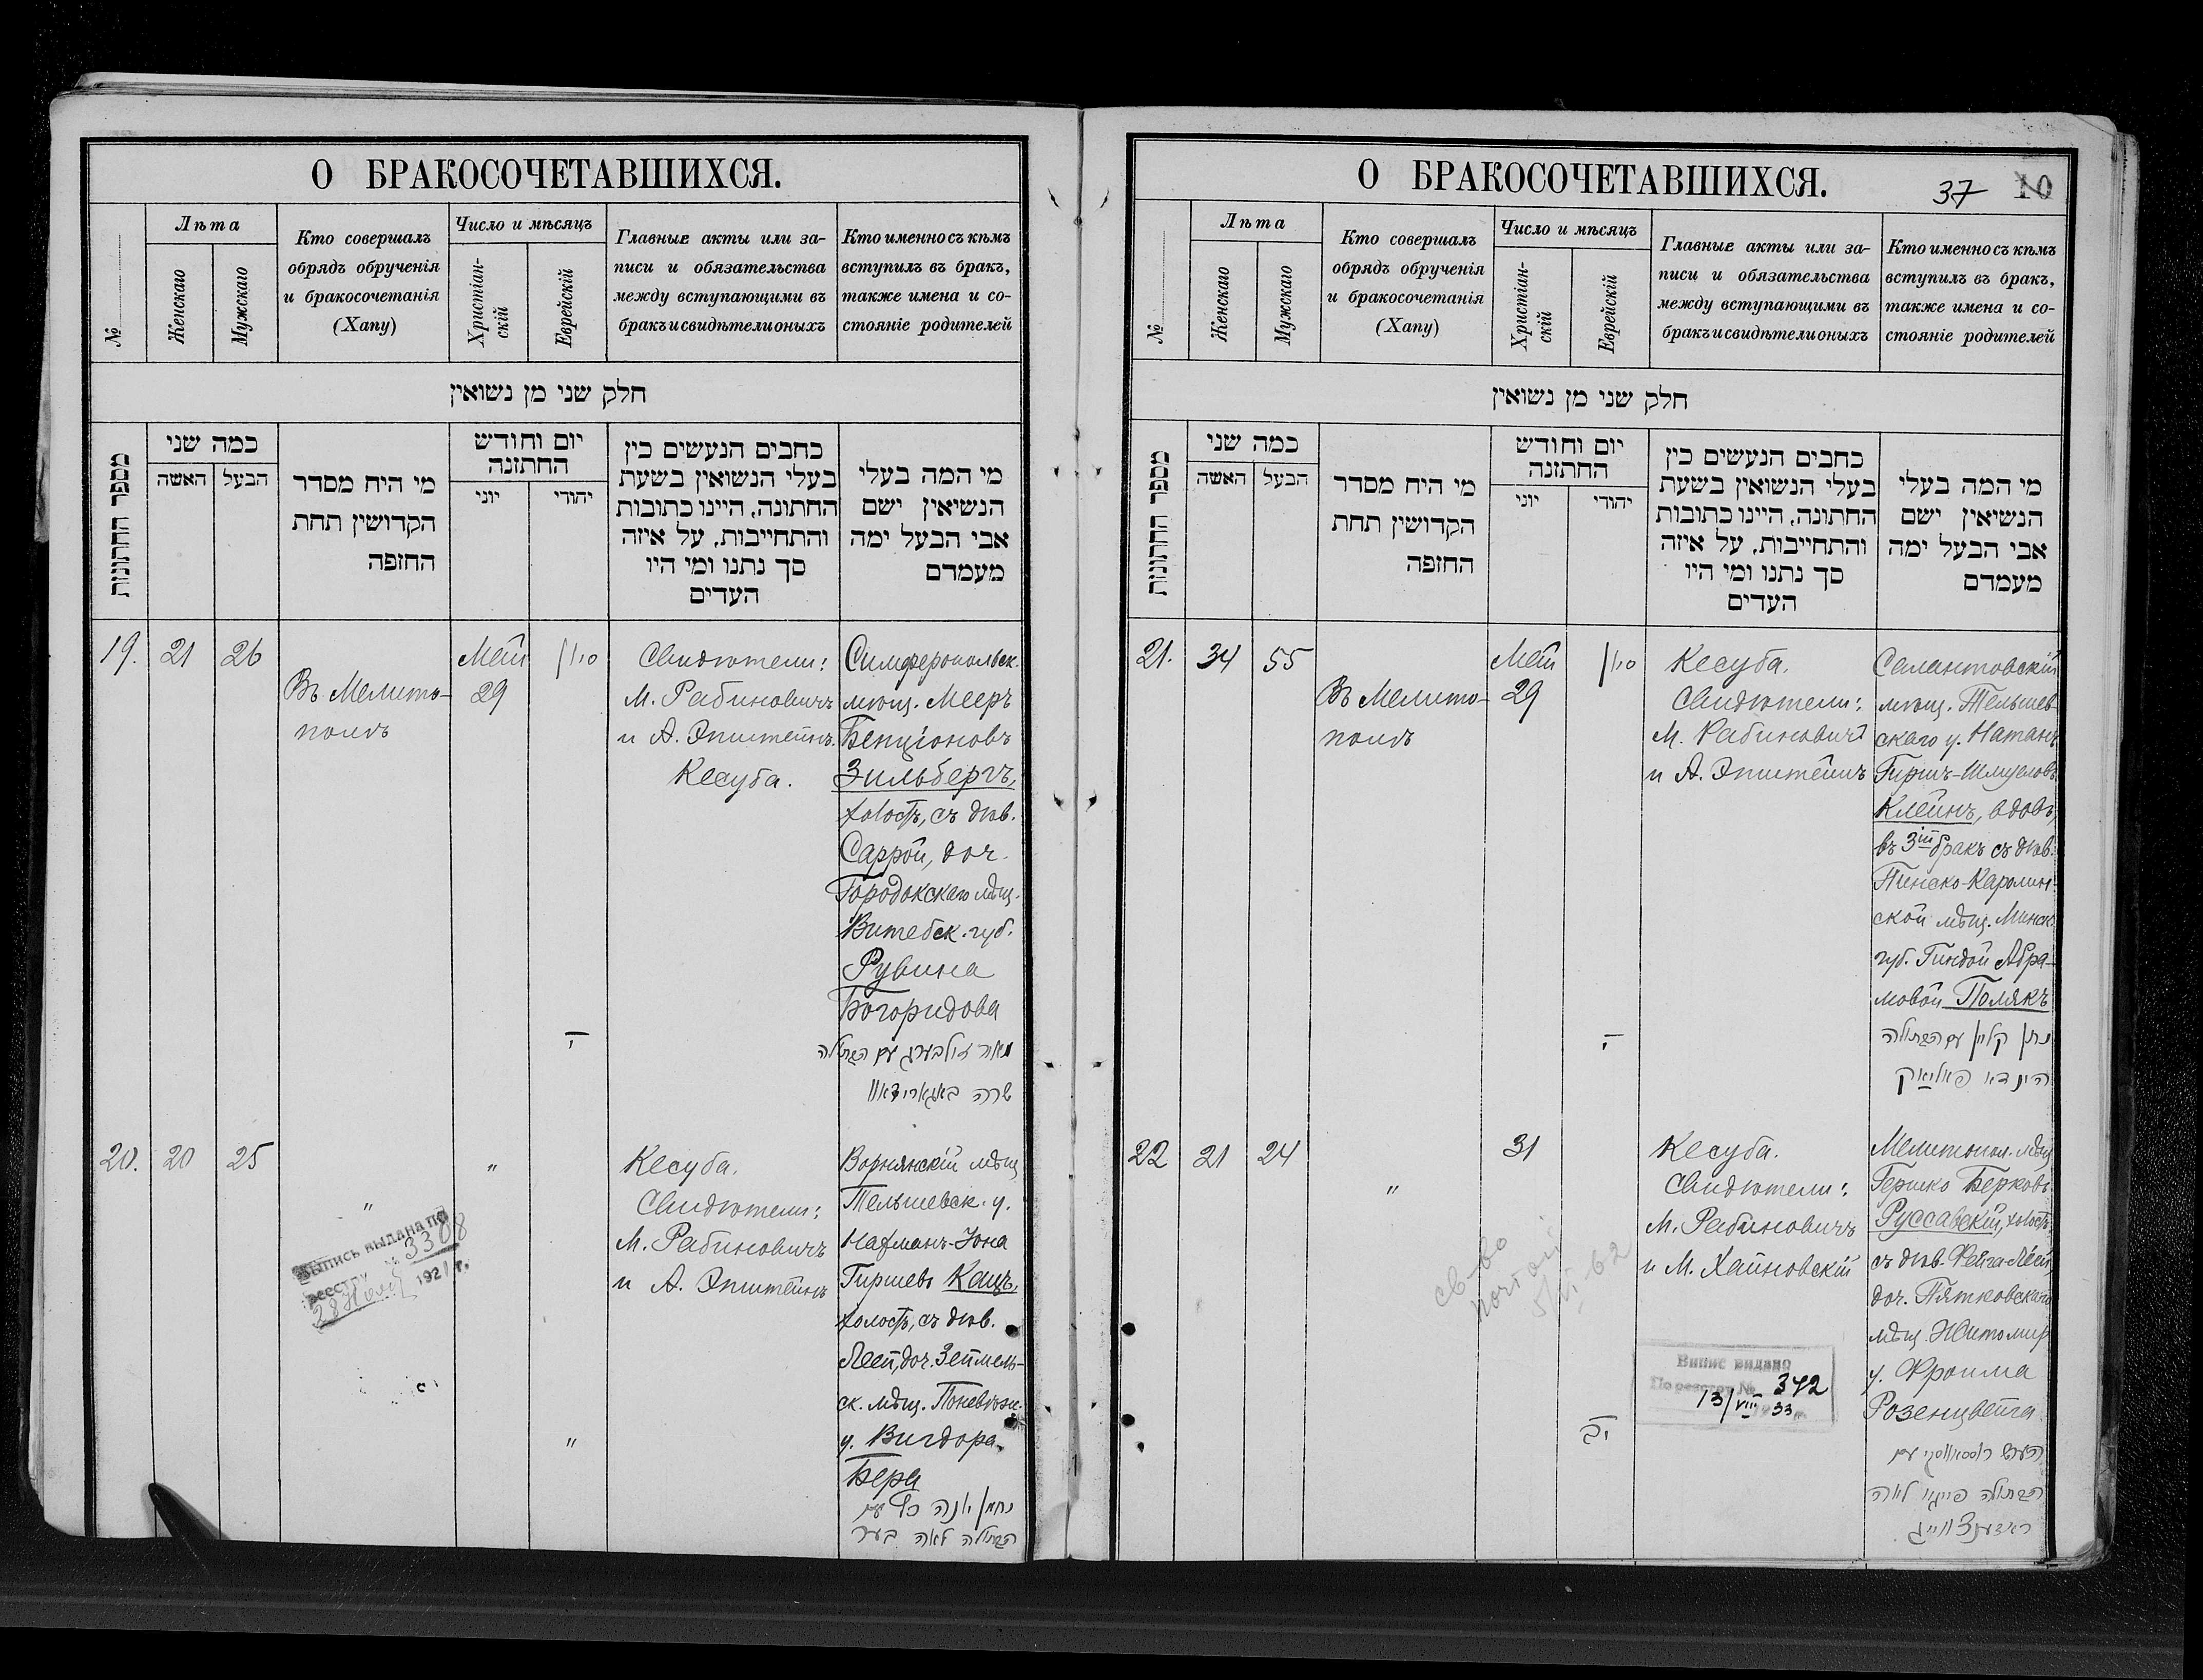 О БРАКОСОЧЕТАВШИХСЯ.
№
Лѣта
Женскаго
Мужскаго
Кто совершалъ
обрядъ обрученія
и бракосочетанія
(Хапу)
Число и мѣсяцъ
Христіан-
скій
Еврейскій
Главные акты или за-
писи и обязательства
между вступающими въ
бракъ и свидѣтели оныхъ
Кто именно съ кѣмъ
вступилъ въ бракъ,
также имена и со-
стояніе родителей
חלק שני מן נשואין
מספר החתונות
כמה שני
האשה
הבעל
מי היח מסדר
הקדושין תחת
החזפה
יום וחודש
החתזנה
יוני
יהודי
כחבים הנעשים כין
בעלי הנשואין בשעת
החתונה, היינו כתובות
והתחייבות, על איזה
סך נתנו ומי היו
העדים
מי המה בעלי
הנשיאין ישם
אבי הבעל ימה
מעמדם
19.
21
26
Въ Мелито-
полѣ
Май
29
סיון
י
Свидѣтели:
М. Рабиновичъ
и А. Эпштейнъ.
Кесуба.
Симферопольск.
мѣщ. Мееръ
Бенціоновъ
Зильбергъ,
холостъ, съ дѣв.
Саррой, доч.
Городокскаго мѣщ.
Витебск. губ.
Рувина
Богоридова
מאיר זילבערג עם הבתולה
שרה באגארידאוו
20.
20
25
"
"
"
Выпись выдана по
реестру № 3308
28 1921 г.
Кесуба.
Свидѣтели:
М. Рабиновичъ
и А. Эпштейнъ
Ворнянскій мѣщ
Тельшевск. у.
Нахманъ-Іона
Гиршевъ Кацъ,
холостъ, съ дѣв.
Леей, доч. Зеймель-
ск. мѣщ. Поневѣж.
у. Вигдора
Бера
נחמן יונה כץ עם
הבתולה לאה בער
О БРАКОСОЧЕТАВШИХСЯ.
37
10
№
Лѣта
Женскаго
Мужскаго
Кто совершалъ
обрядъ обрученія
и бракосочетанія
(Хапу)
Число и мѣсяцъ
Христіан-
скій
Еврейскій
Главные акты или за-
писи и обязательства
между вступающими въ
бракъ и свидѣтели оныхъ
Кто именно съ кѣмъ
вступилъ въ бракъ,
также имена и со-
стояніе родителей
חלק שני מן נשואין
מספר החתונות
כמה שני
האשה
הבעל
מי היח מסדר
הקדושין תחת
החזפה
יום וחודש
החתזנה
יוני
יהודי
כחבים הנעשים כין
בעלי הנשואין בשעת
החתונה, היינו כתובות
והתחייבות, על איזה
סך נתנו ומי היו
העדים
מי המה בעלי
הנשיאין ישם
אבי הבעל ימה
מעמדם
21.
34
55
Въ Мелито-
полѣ
Май
29
סיון
י
Кесуба.
Свидѣтели:
М. Рабиновичъ
и А. Эпштейнъ
Салантовскій
мѣщ. Тельшев-
скаго у. Натанъ
Гиршъ-Шмуеловъ
Клейнъ, вдовъ,
въ 3ій бракъ съ дѣв.
Пинско-Каролин-
ской мѣщ. Минск.
губ. Гиндой Абра-
мовой Полякъ
נתן קליין עם הבתולה
הינדא פאליאק
22
21
24
"
31
יב
св-во
5/VI-62
Кесуба.
Свидѣтели:
М. Рабиновичъ
и М. Хайновскій
Випис видано
По реестру № 372
13/VIII 33
Мелитопол. мѣщ
Гершко Берковъ
Руссавскій, холостъ,
съ дѣв. Фейга-Леей,
доч. Пятковскаго
мѣщ. Житомир
у. Фроима
Розенцвейга
הערש רוסאווסקי עם
הבתולה פייגא לאה
ראזענצווייג